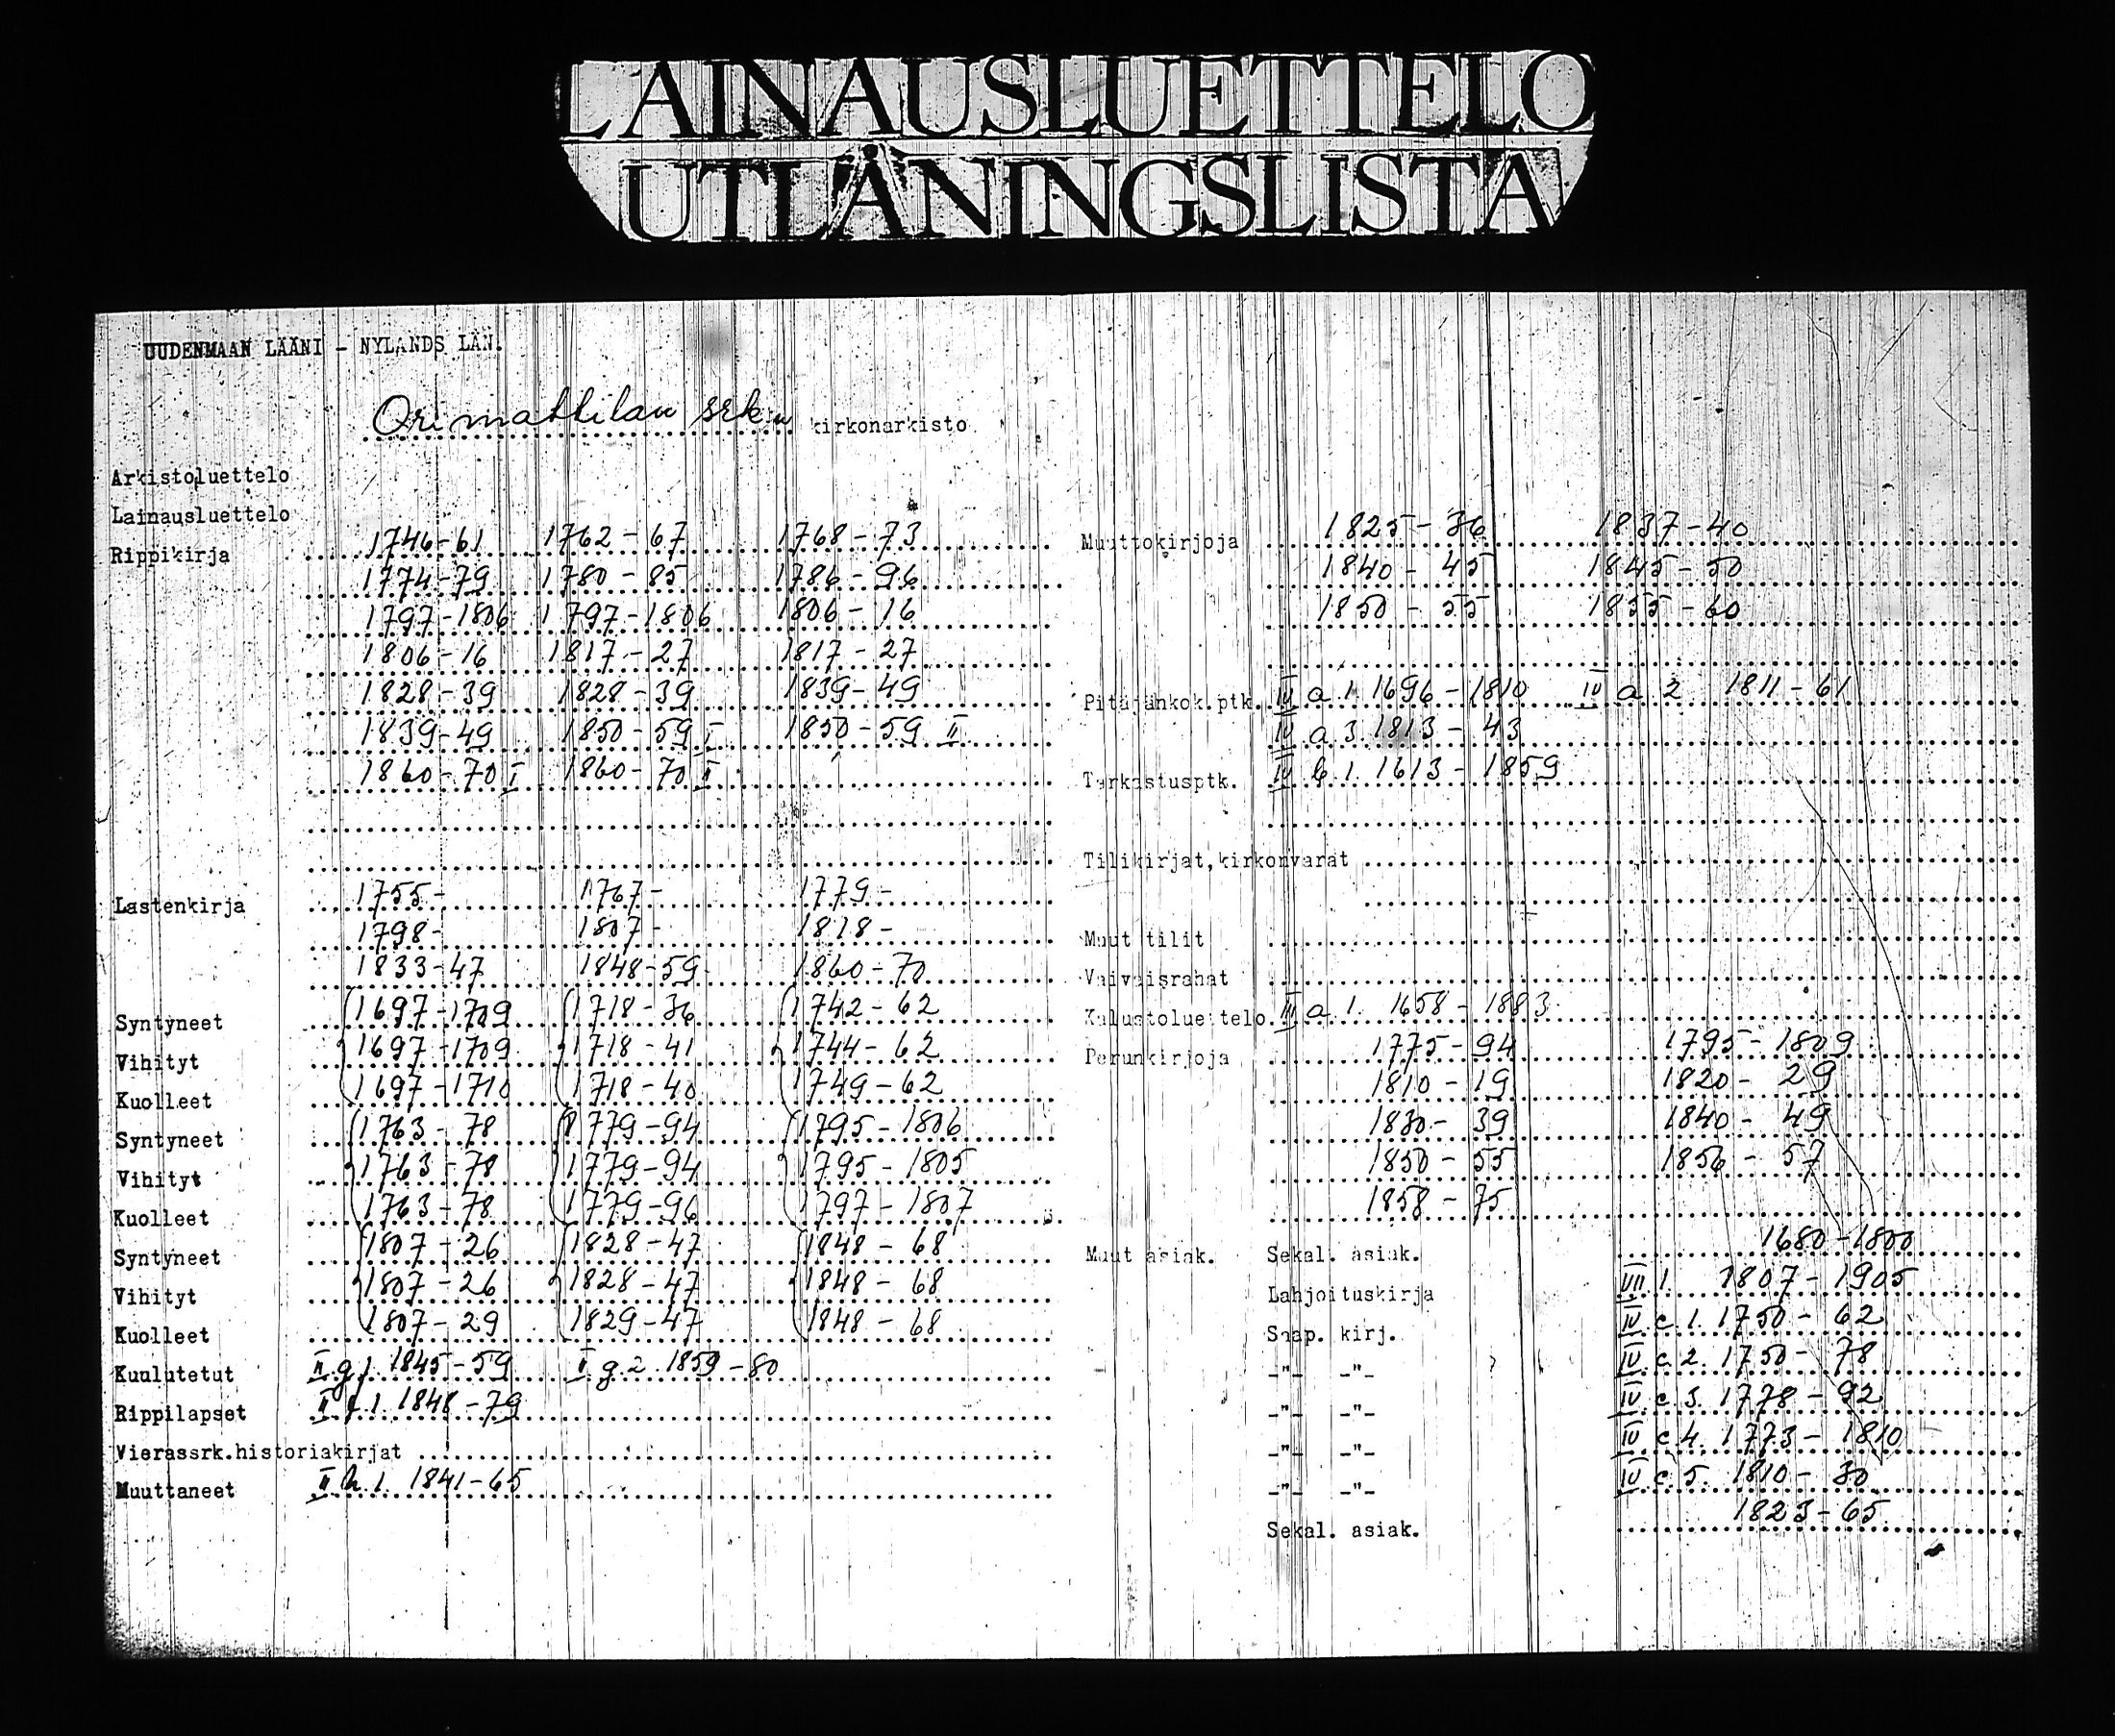 LAINAUSLUETTELO
UTLÅNINGSLISTA
UUDENMAAN LÄÄNI - NYLANDS LÄN.
Orimattilan srk:n kirkonarkisto
Arkistoluettelo
Lainausluettelo
Rippikirja 1746-61 1762-67 1768-73
1774-79 1780-85 1786-96
1797-1806 1797-1806 1806-16
1806-16 1817-27 1817-27
1828-39 1828-39 1839-49
1839-49 1850-59 I 1850-59 II
1860-70 I 1860-70 II
Lastenkirja 1755- 1767- 1779-
1798- 1807- 1818-
1833-47 1848-59 1860-70
Syntyneet 1697-1709 1718-36 1742-62
Vihityt 1697-1709 1718-41 1744-62
Kuolleet 1697-1710 1718-40 1749-62
Syntyneet 1763-78 1779-94 1795-1806
Vihityt 1763-78 1779-94 1795-1805
Kuolleet 1763-78 1779-96 1797-1807
Syntyneet 1807-26 1828-47 1848-68
Vihityt 1807-26 1828-47 1848-68
Kuolleet 1807-29 1829-47 1848-68
Kuulutetut II g.1. 1845-59 II g.2. 1859-80
Rippilapset II f.1. 1848-79
Vierassrk.historiakirjat
Muuttaneet II h.1. 1841-65
Muuttokirjoja 1825-36 1837-40
1840-45 1845-50
1850-55 1855-60
Pitäjänkok.ptk. IV a.1. 1696-1810 IV a.2 1811-61
IV a.3. 1813-43
Tarkastusptk. IV b.1. 1613-1859
Tilikirjat,kirkonvarat
Muut tilit
Vaivaisrahat
Kalustoluettelo. III a.1. 1658-1883
Perunkirjoja 1775-94 1795-1809
1810-19 1820-29
1830-39 1840-49
1850-55 1856-57
1858-75
Muut asiak. Sekal. asiak. 1680-1800
Lahjoituskirja VII 1. 1807-1905
Saap. kirj. IV c.1. 1750-62
-"- -"- IV c.2. 1750-78
-"- -"- IV c.3. 1778-92
-"- -"- IV c.4. 1773-1810
-"- -"- IV c.5. 1810-30
Sekal. asiak. 1823-65